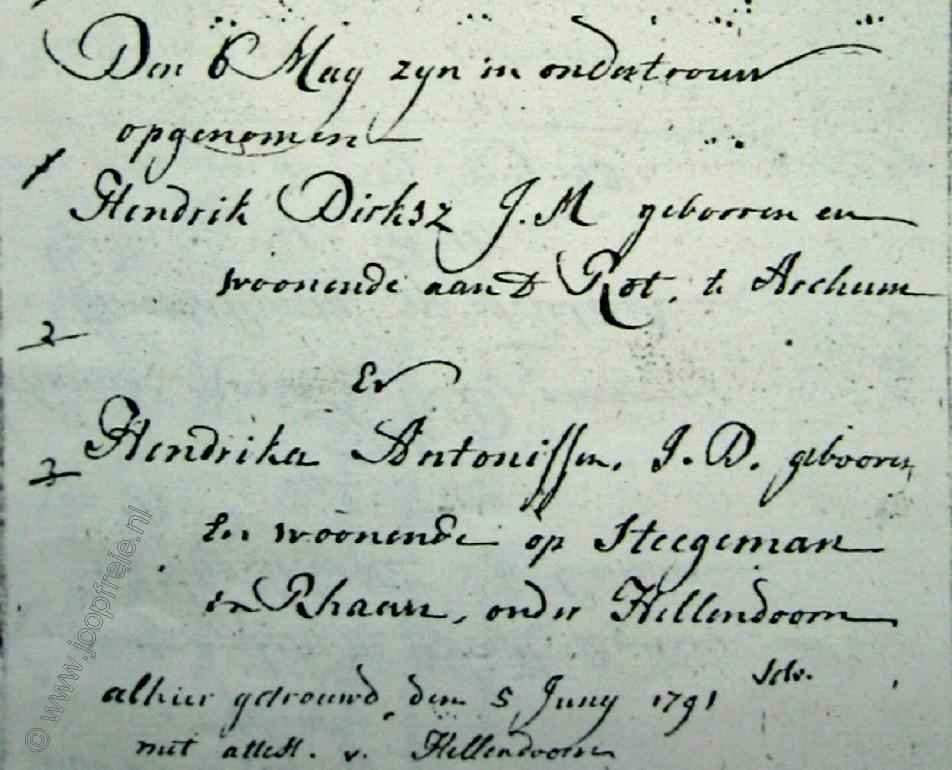 Den 6 May zyn in ondertrouw
opgenomen
1
Hendrik Dirksz J.M geboren en
woonende aan d Rot. te Archum
2
En
Hendrika Antonissen. J.D. gebooren
3
En woonende op Steegeman
in Rhaan, onder Hellendoorn
alhier getrouwd den 5 Juny 1791
met attest. v. Hellendoorn
© www.joopfreie.nl